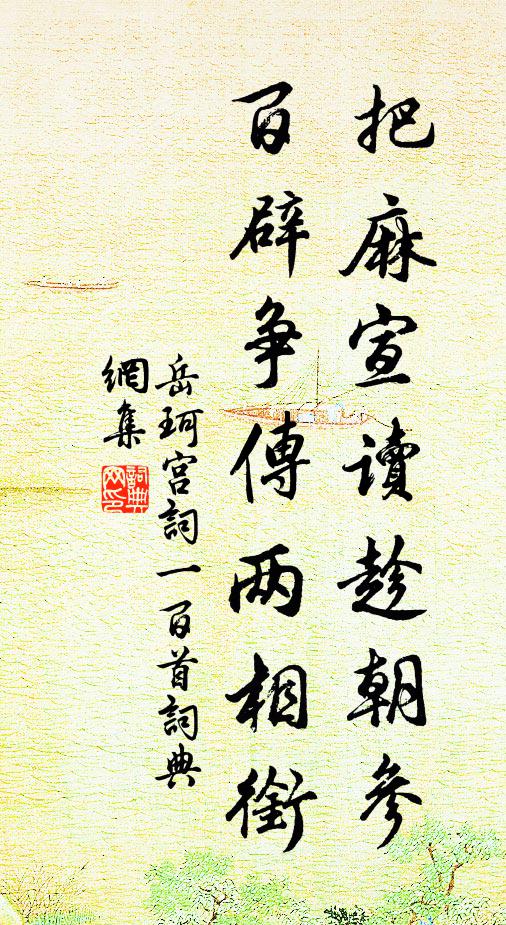 把麻宣讀趁朝參
百辟爭傳两相銜
岳珂宮詞一百首詞典
網集
詞典網印